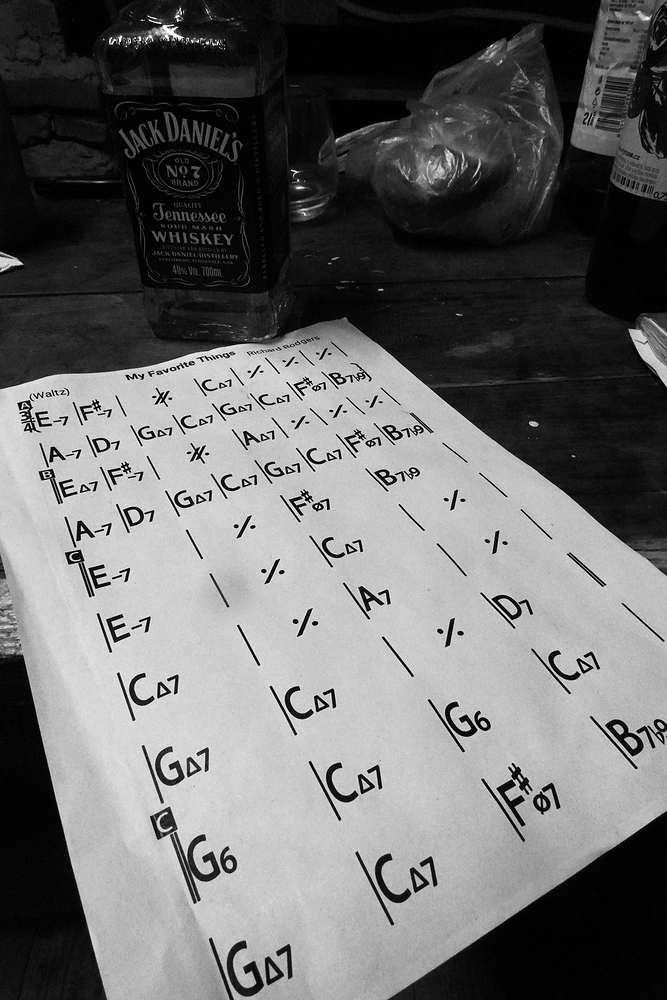 JACK DANIEL'S
OLD
No. 7
BRAND
QUALITY
Tennessee
SOUR MASH
WHISKEY
DISTILLED AND BOTTLED BY
JACK DANIEL DISTILLERY
LYNCHBURG, TENNESSEE, USA
40% Vol. 700ml
2l
My Favorite Things Richard Rodgers
(Waltz)
A 3/4 E–7 | F#–7 | 𝄎 | CΔ7 | % | % | % |
A–7 | D7 | GΔ7 | CΔ7 | GΔ7 | CΔ7 | F#ø7 | B7♭9
B EΔ7 | F#–7 | 𝄎 | AΔ7 | % | % | % |
A–7 | D7 | GΔ7 | CΔ7 | GΔ7 | CΔ7 | F#ø7 | B7♭9
C E–7 | % | F#ø7 | B7♭9 |
E–7 | % | CΔ7 | % |
CΔ7 | % | A7 | % |
GΔ7 | CΔ7 | % | D7
C G6 | CΔ7 | G6 | CΔ7
GΔ7 | CΔ7 | F#ø7 | B7♭9